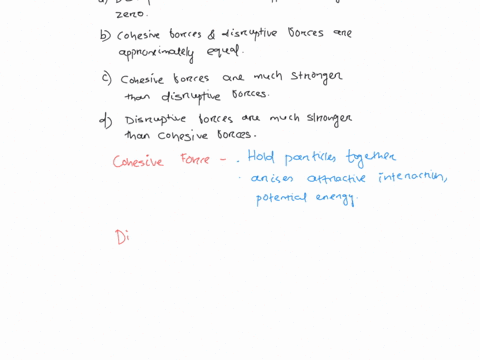 zero.
b) Cohesive forces & disruptive forces are
approximately equal.
c) Cohesive forces are much stronger
than disruptive forces.
d) Disruptive forces are much stronger
than cohesive forces.
Cohesive Force - . Hold particles together
. arises attractive interaction,
potential energy.
Di